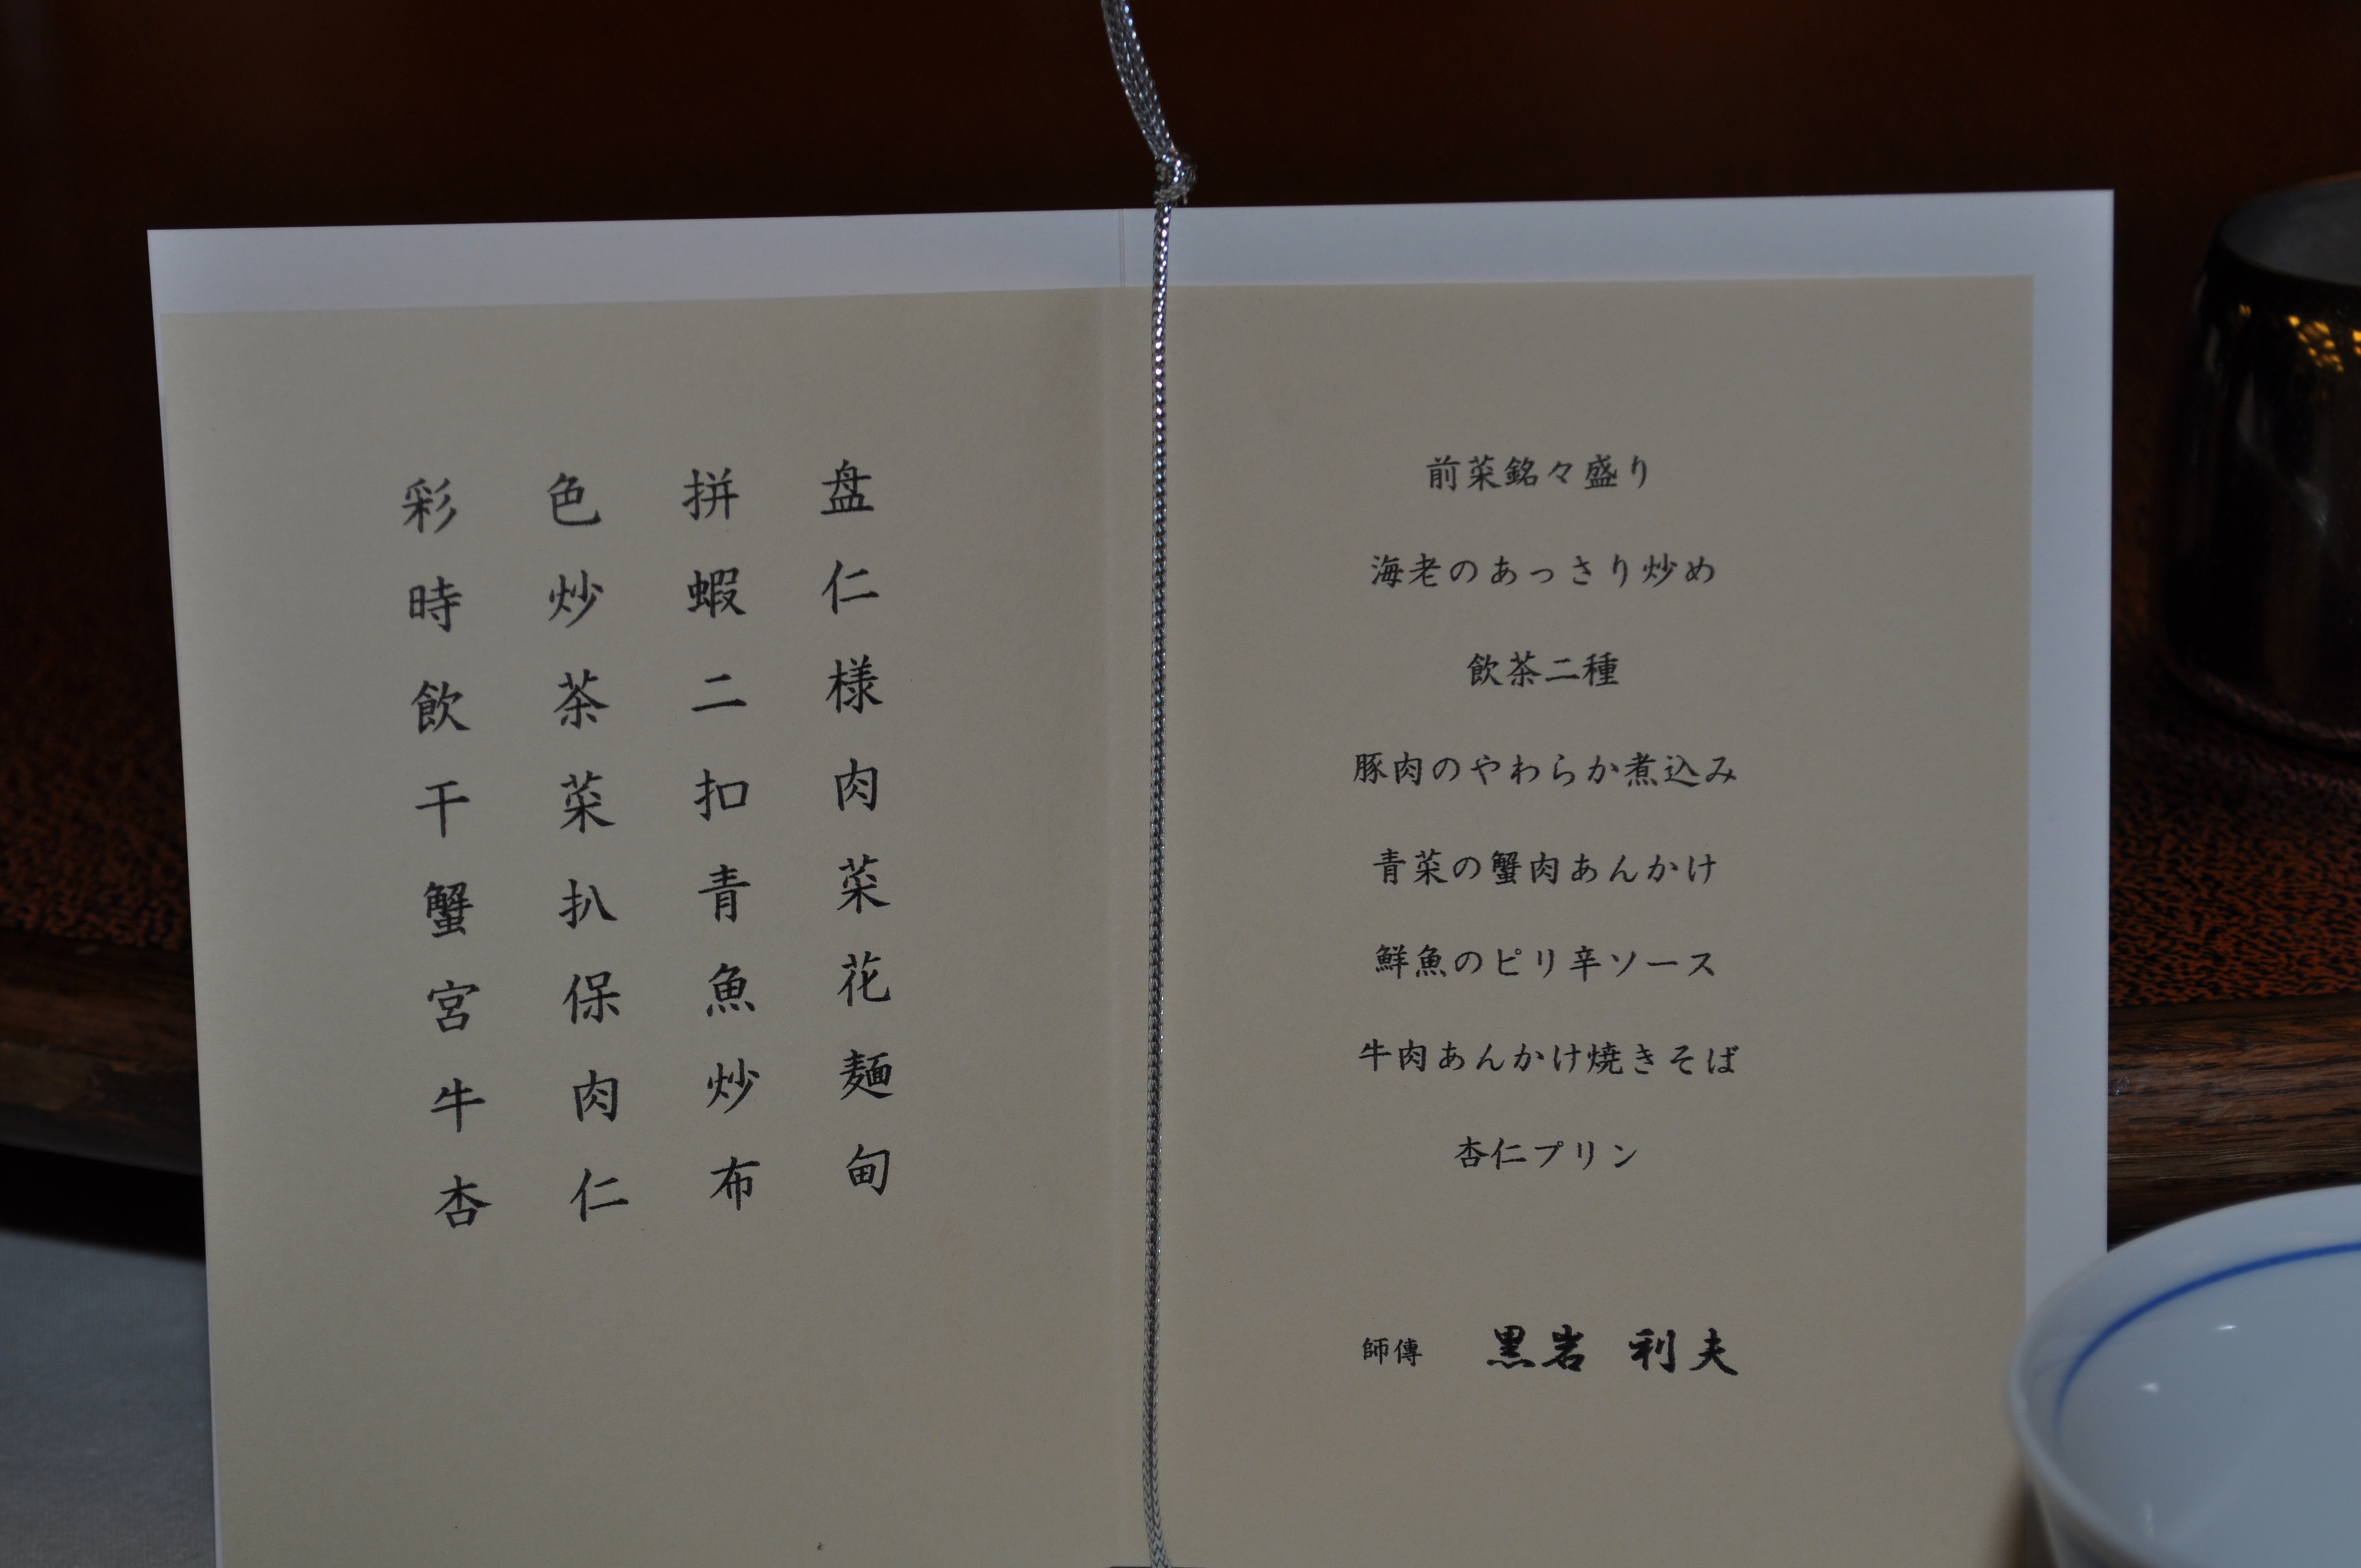 彩色拼盘
時炒蝦仁
飲茶二様
干菜扣肉
蟹扒青菜
宮保魚花
牛肉炒麺
杏仁布甸
前菜銘々盛り
海老のあっさり炒め
飲茶二種
豚肉のやわらか煮込み
青菜の蟹肉あんかけ
鮮魚のピリ辛ソース
牛肉あんかけ焼きそば
杏仁プリン
師傳 黒岩 利夫